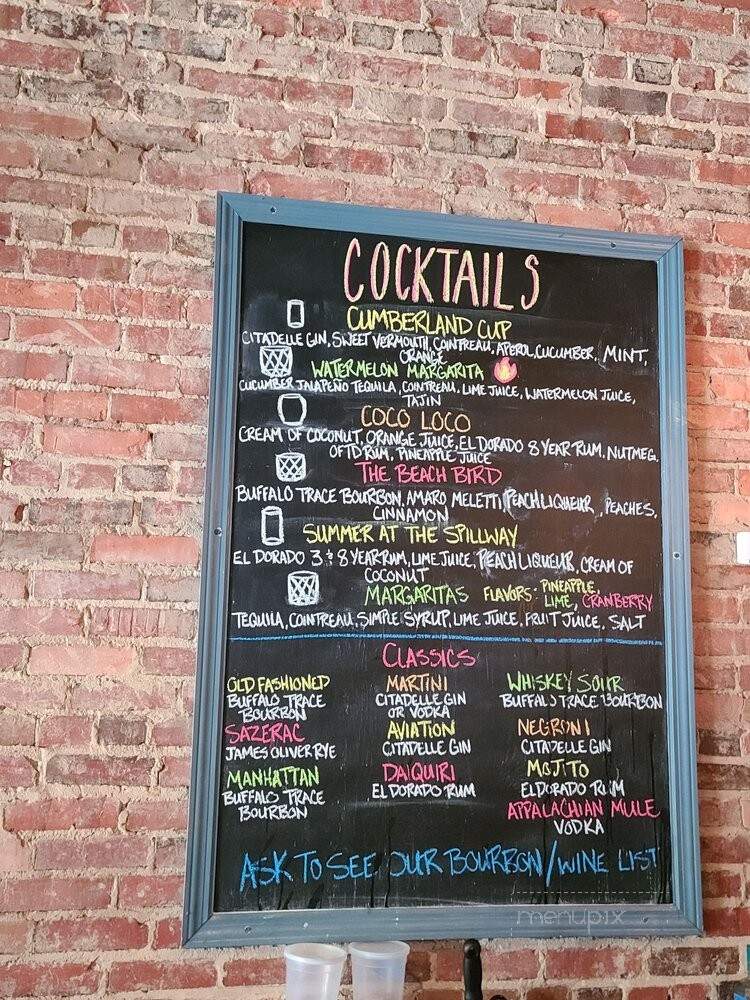 COCKTAILS
CUMBERLAND CUP
CITADELLE GIN, SWEET VERMOUTH, COINTREAU, APEROL, CUCUMBER, MINT,
ORANGE
WATERMELON MARGARITA
CUCUMBER JALAPEÑO TEQUILA, COINTREAU, LIME JUICE, WATERMELON JUICE,
TAJIN
COCO LOCO
CREAM OF COCONUT, ORANGE JUICE, EL DORADO 8 YEAR RUM, NUTMEG,
OFTD RUM, PINEAPPLE JUICE
THE BEACH BIRD
BUFFALO TRACE BOURBON, AMARO MELETTI, PEACH LIQUEUR, PEACHES,
CINNAMON
SUMMER AT THE SPILLWAY
EL DORADO 3 & 8 YEAR RUM, LIME JUICE, PEACH LIQUEUR, CREAM OF
COCONUT
MARGARITAS FLAVORS: PINEAPPLE,
LIME, CRANBERRY
TEQUILA, COINTREAU, SIMPLE SYRUP, LIME JUICE, FRUIT JUICE, SALT
CLASSICS
OLD FASHIONED
BUFFALO TRACE
BOURBON
SAZERAC
JAMES OLIVER RYE
MANHATTAN
BUFFALO TRACE
BOURBON
MARTINI
CITADELLE GIN
OR VODKA
AVIATION
CITADELLE GIN
DAIQUIRI
EL DORADO RUM
WHISKEY SOUR
BUFFALO TRACE BOURBON
NEGRONI
CITADELLE GIN
MOJITO
EL DORADO RUM
APPALACHIAN MULE
VODKA
ASK TO SEE OUR BOURBON/WINE LIST
menupix